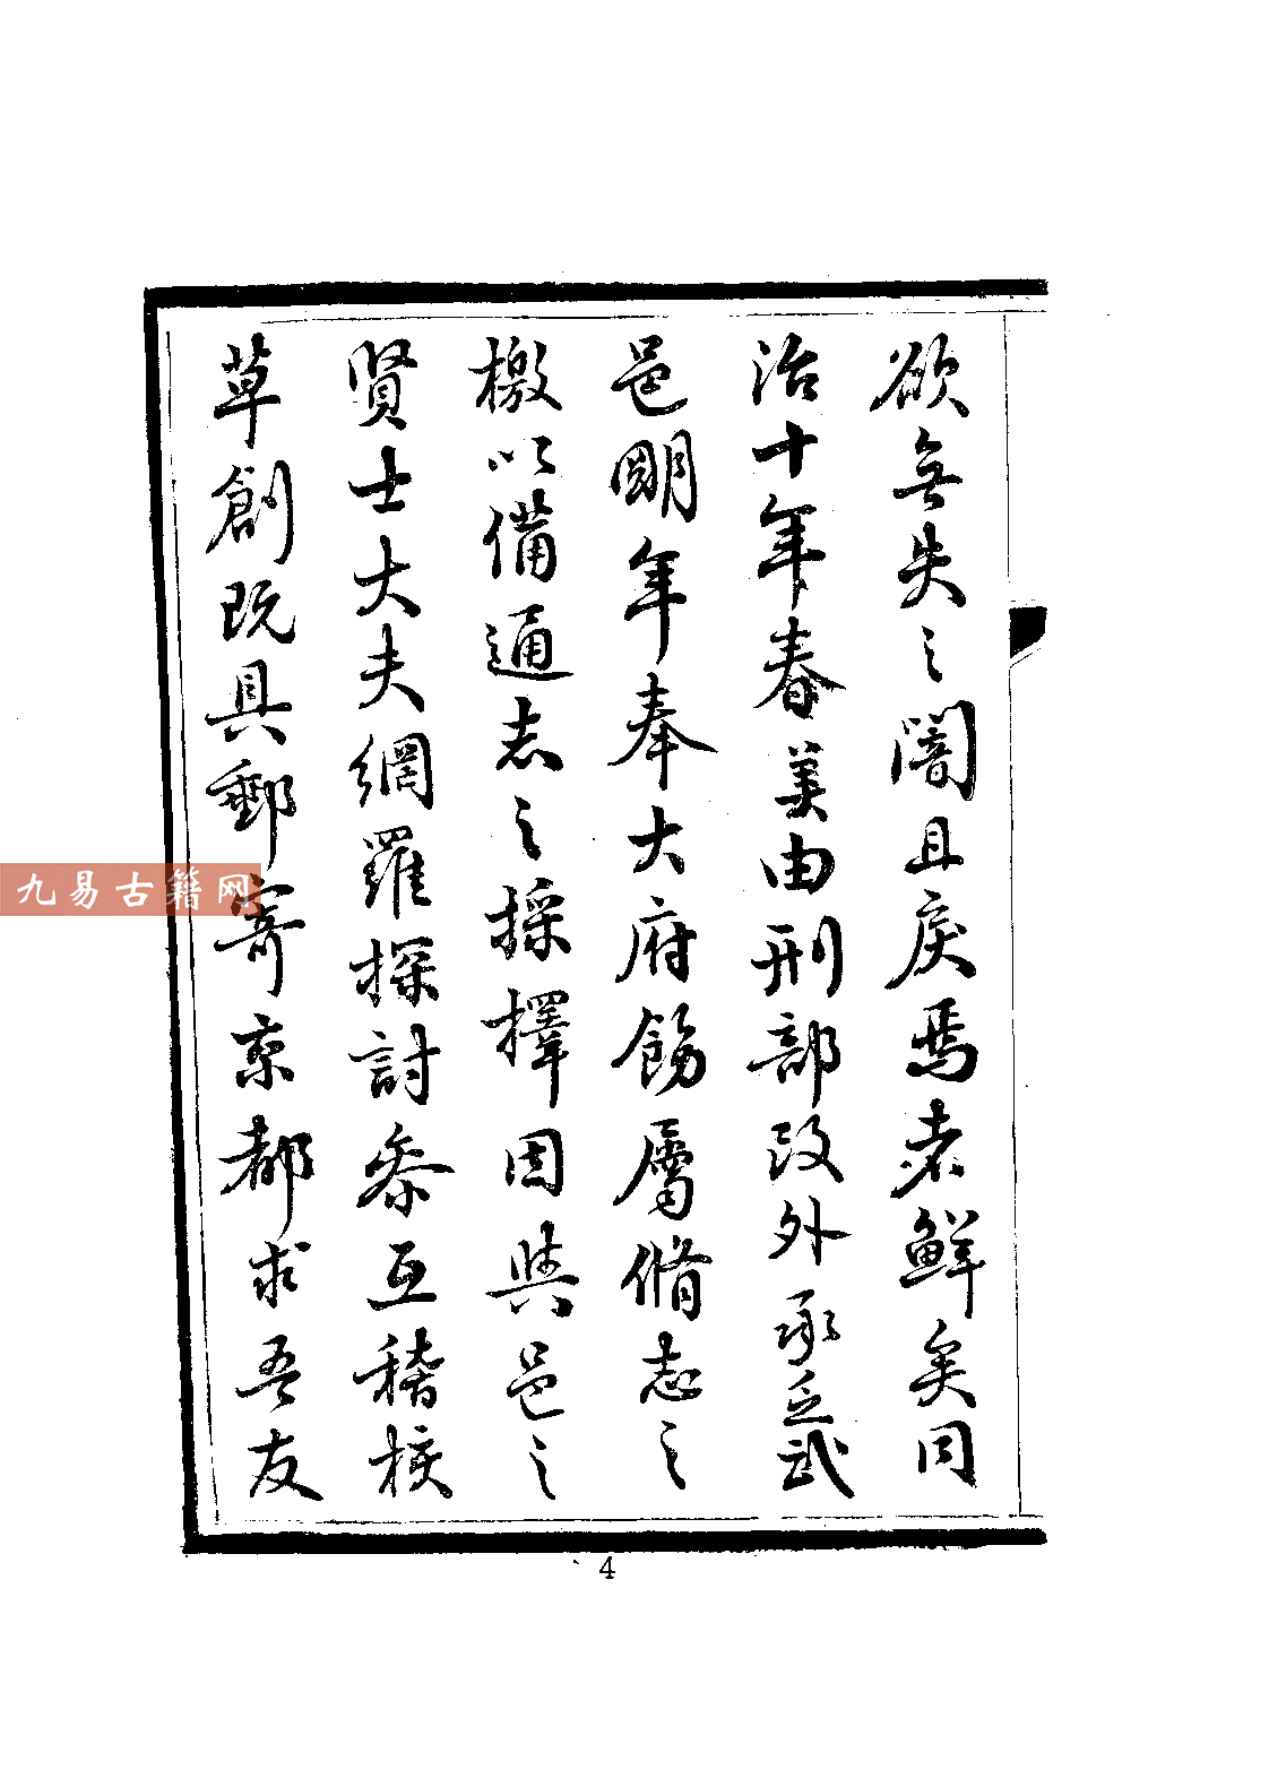 欲無失之闇且戾焉者鮮矣同
治十年春美由刑部改外承乏武
邑明年奉大府飭屬脩志之
檄以備通志之採擇因與邑之
賢士大夫網羅探討叅互稽核
草創既具郵寄京都求吾友
九易古籍网
4